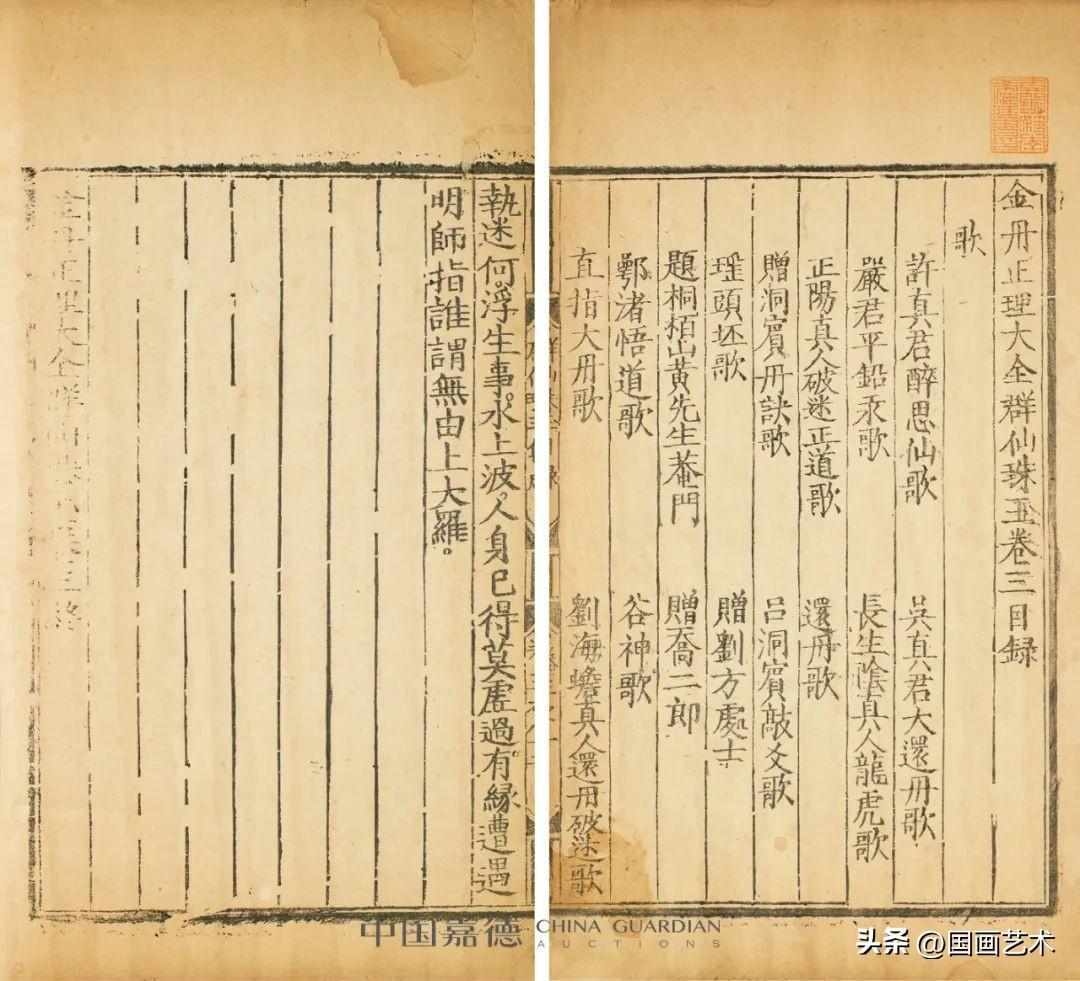 金丹正理大全群仙珠玉卷三目録
歌
許真君醉思仙歌　吳真君大還丹歌
嚴君平鉛汞歌　長生陰真人龍虎歌
正陽真人破迷正道歌　還丹歌
贈洞賓丹訣歌　呂洞賓敲爻歌
瑤頭坯歌　贈劉方處士
題桐栢山黃先生菴門　贈喬二郎
鄂渚悟道歌　谷神歌
直指大丹歌　劉海蟾真人還丹破迷歌
執迷何。浮生事。水上波。人身已得莫虛過。有緣遭遇
明師指。誰謂無由上大羅。
金丹正理大全群仙珠玉卷三終
中国嘉德 CHINA GUARDIAN
AUCTIONS
头条 @国画艺术